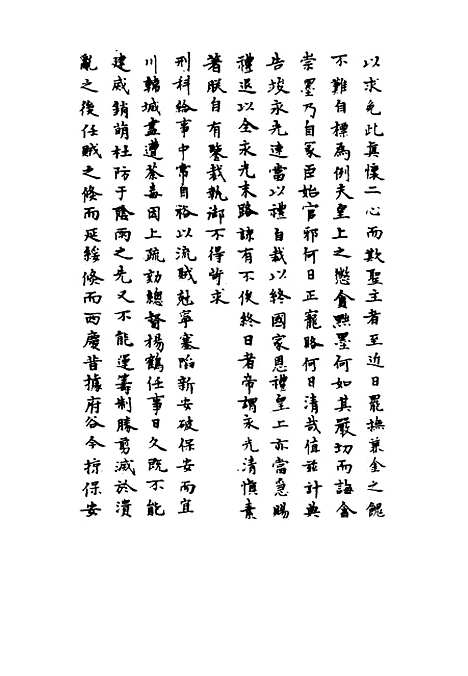 以求免此真懷二心而欺聖主者至近日罷撫慕金之餽
不難自標為例夫皇上之懲貪黜墨何如其嚴切而誨貪
崇墨乃自冢臣始官邪何日正寵賂何日清哉值茲計典
告竣永光速當以禮自裁以終國家恩禮皇上亦當急賜
禮退以全永光末路諒有不俟終日者帝謂永光清慎素
著朕自有鑒裁執御不得苛求
刑科給事中常自裕以流賊尅寧塞陷新安破保安而宜
川韓城盡遭荼毒因上疏劾總督楊鶴任事日久既不能
建威銷萌杜防于陰雨之先又不能運籌制勝剪滅於潰
亂之後任賊之倏而延綏倏而西慶昔據府谷今掠保安